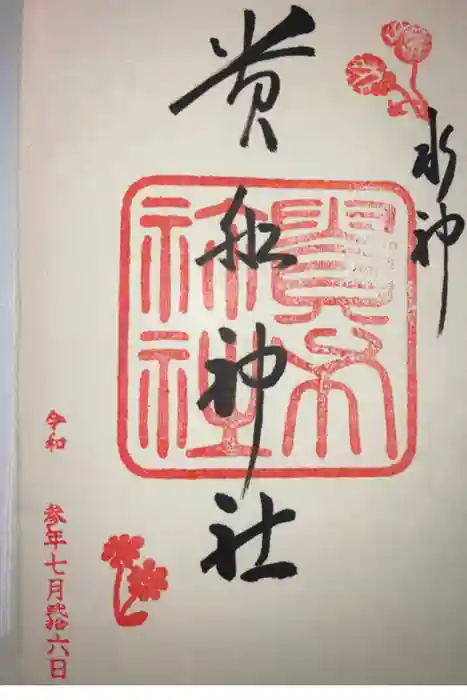 水神
貴船神社
貴布祢社
令和 参年七月弐拾六日